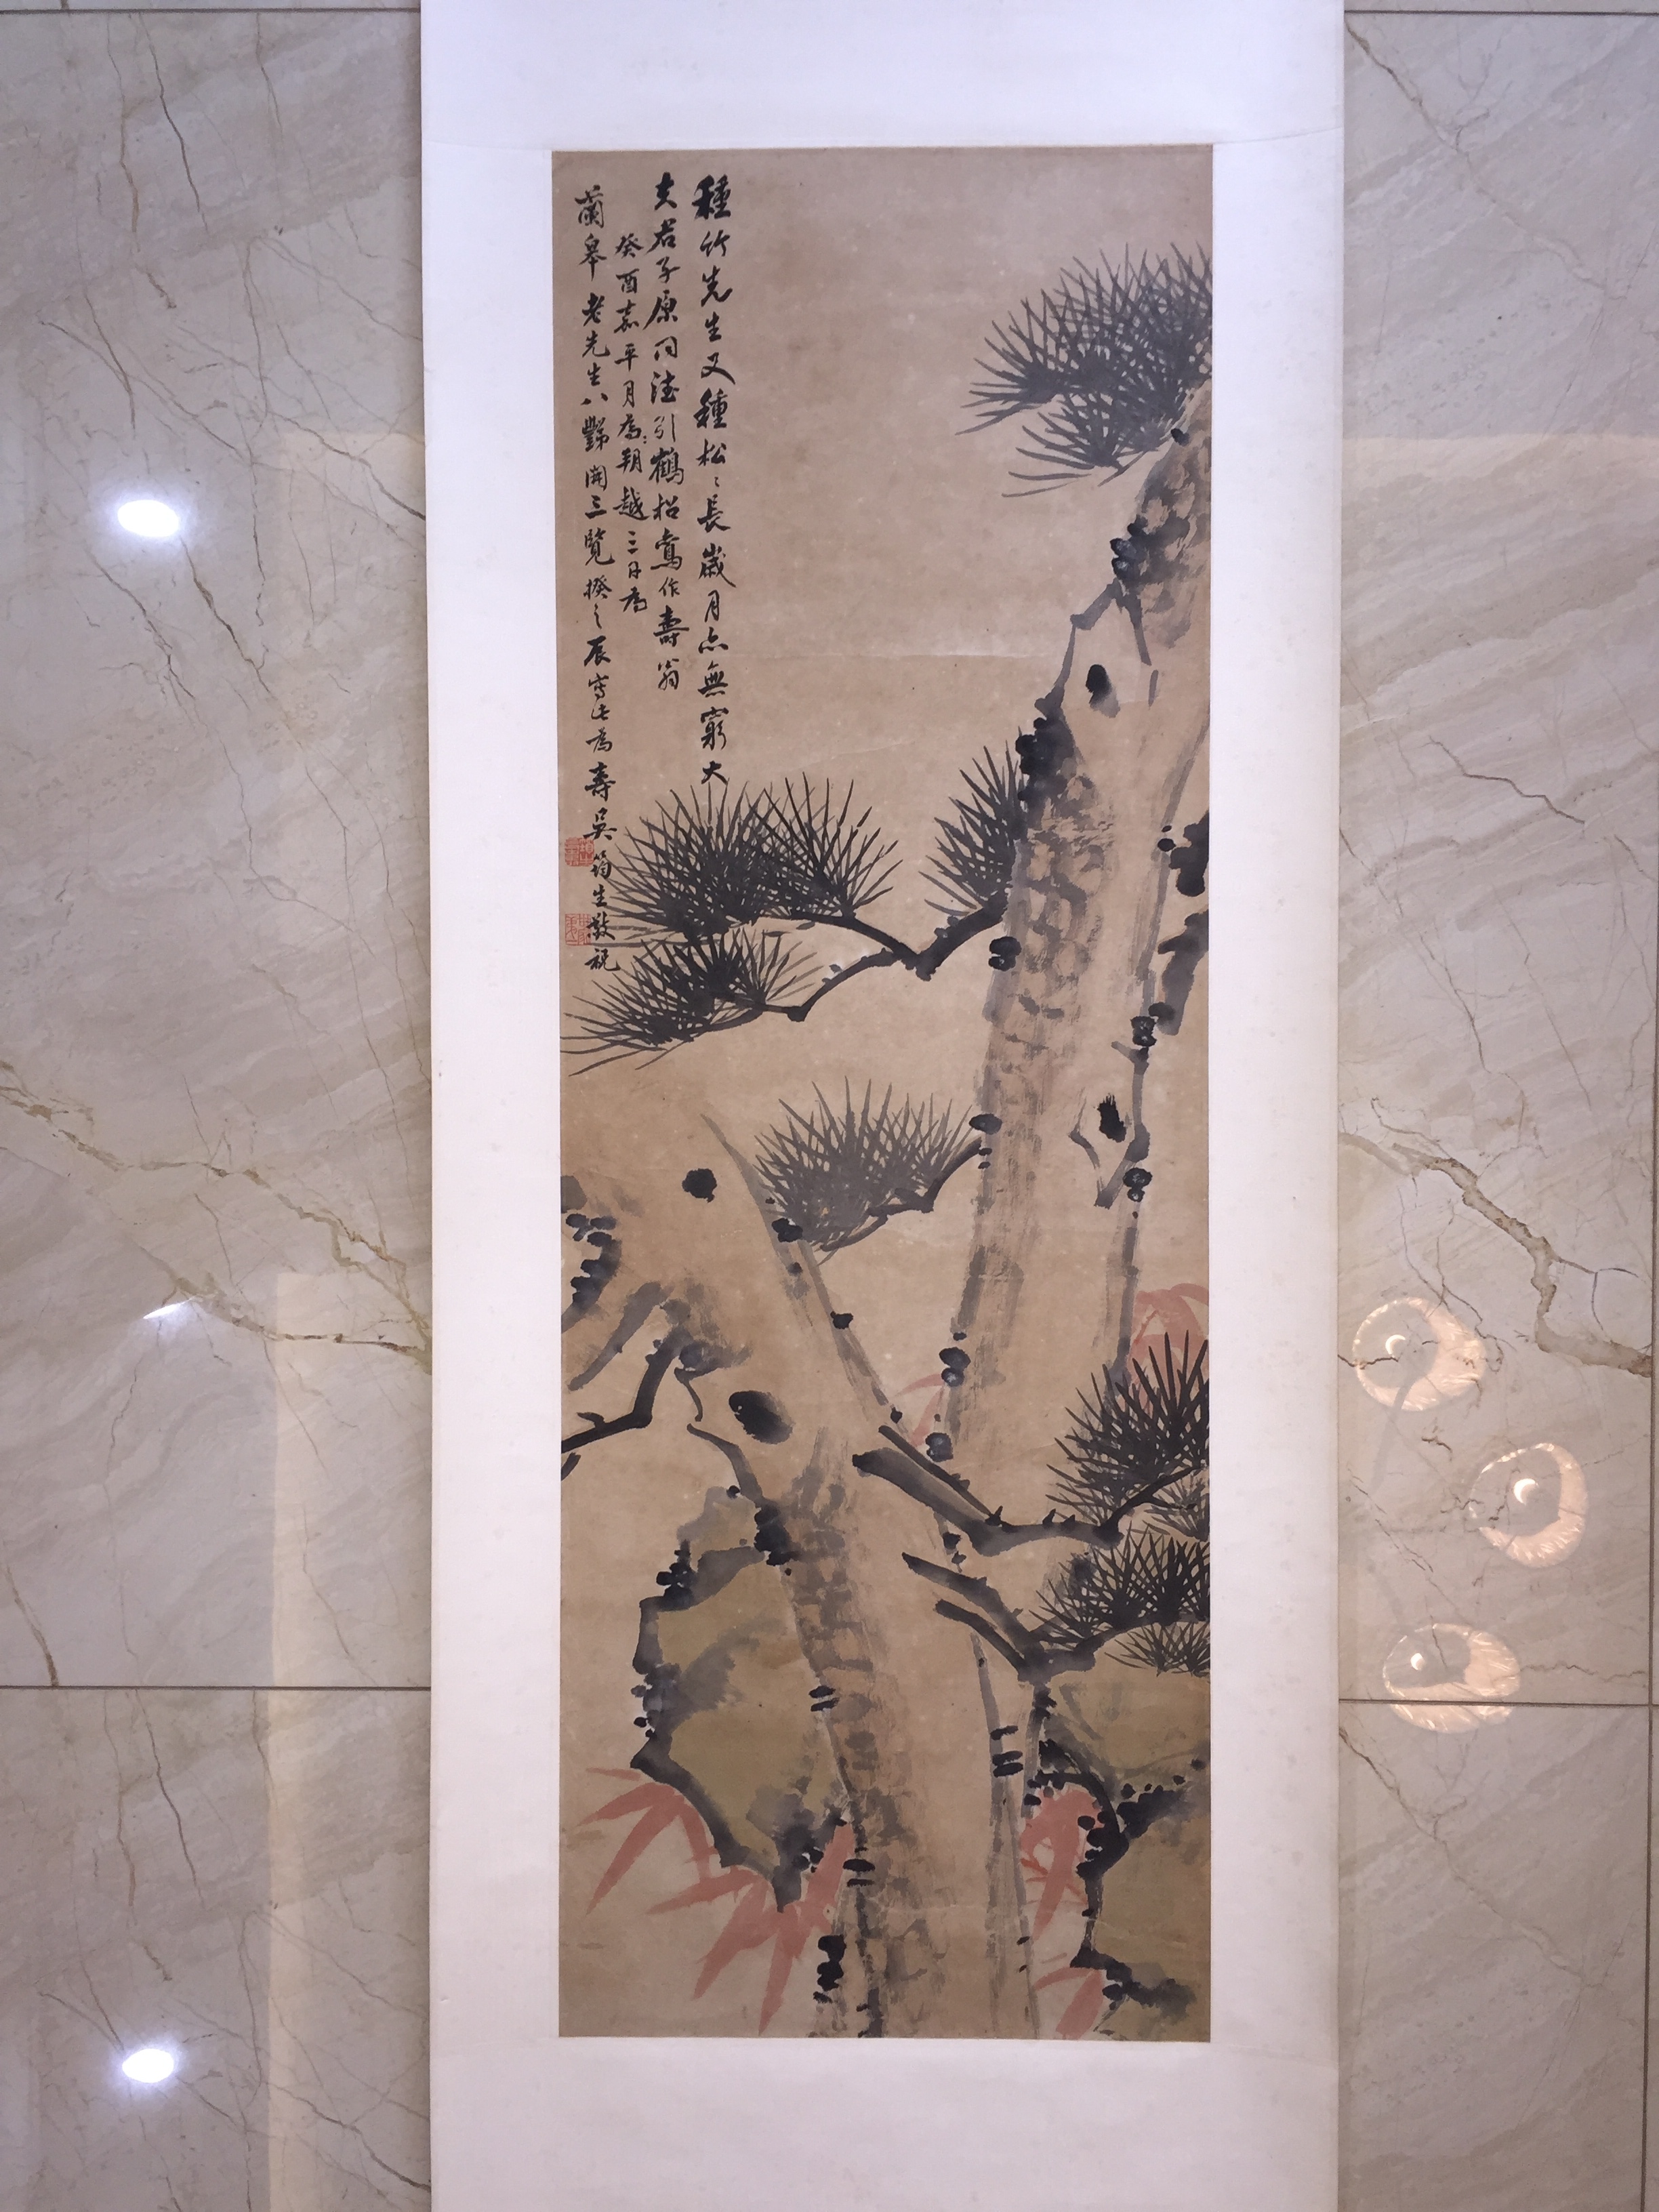 種竹先生又種松〻長歲月亦無窮大
夫君子原同德引鶴招鸞作壽翁
癸酉嘉平月為朔越三日為
蘭皋老先生八豒開三覽揆之辰寫此為壽吳筠生敬祝